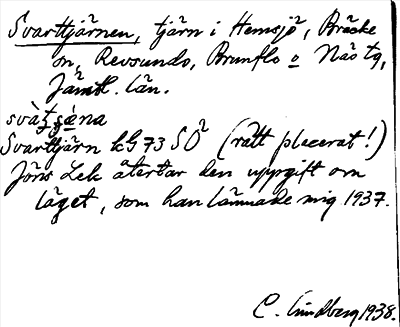 Svarttjärnen, tjärn i Hemsjö, Bräcke
sn, Revsunds, Brunflo o Näs tg,
Jämtl. län.
Svarttjärn LG 73 SO (rätt placerat!)
Jöns Lek återtar den uppgift om
läget, som han lämnade mig 1937.
C. Lindberg 1938.